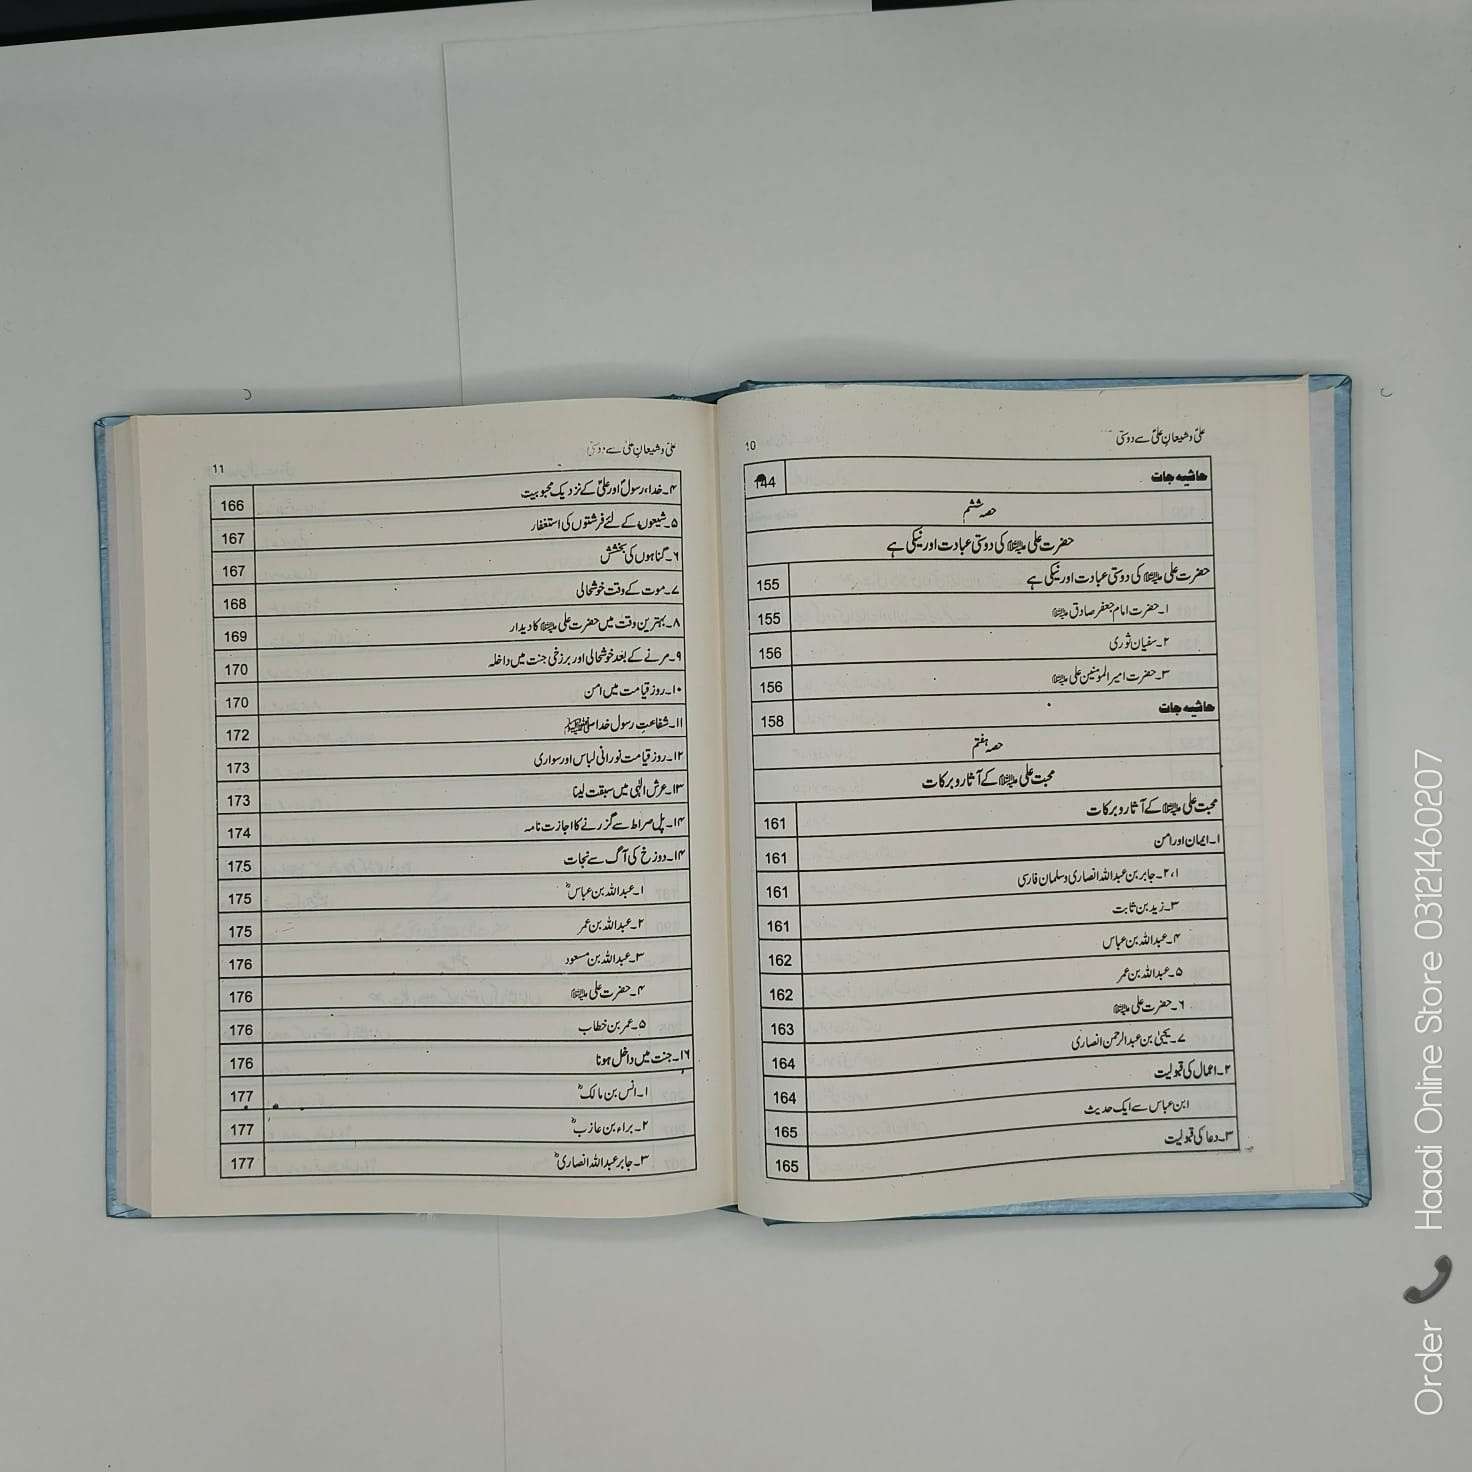 10
علیؑ و شیعانِ علیؑ سے دوستی
حاشیہ جات 144
حصہ ششم
حضرت علی علیہ السلام کی دوستی عبادت اور نیکی ہے
حضرت علی علیہ السلام کی دوستی عبادت اور نیکی ہے 155
۱۔ حضرت امام جعفر صادق علیہ السلام 155
۲۔ سفیان ثوری 156
۳۔ حضرت امیر المومنین علی علیہ السلام 156
حاشیہ جات 158
حصہ ہفتم
محبت علی علیہ السلام کے آثار و برکات
محبت علی علیہ السلام کے آثار و برکات 161
۱۔ ایمان اور امن 161
۱،۲۔ جابر بن عبداللہ انصاری و سلمان فارسی 161
۳۔ زید بن ثابت 161
۴۔ عبداللہ بن عباس 162
۵۔ عبداللہ بن عمر 162
۶۔ حضرت علی علیہ السلام 163
۷۔ یحییٰ بن عبدالرحمن انصاری 164
۲۔ اعمال کی قبولیت 164
ابن عباس سے ایک حدیث 165
۳۔ دعا کی قبولیت 165
11
علیؑ و شیعانِ علیؑ سے دوستی
۴۔ خدا، رسولؐ اور علیؑ کے نزدیک محبوبیت 166
۵۔ شیعوں کے لئے فرشتوں کی استغفار 167
۶۔ گناہوں کی بخشش 167
۷۔ موت کے وقت خوشحالی 168
۸۔ بہترین وقت میں حضرت علی علیہ السلام کا دیدار 169
۹۔ مرنے کے بعد خوشحالی اور برزخی جنت میں داخلہ 170
۱۰۔ روز قیامت میں امن 170
۱۱۔ شفاعتِ رسول خدا ﷺ 172
۱۲۔ روز قیامت نورانی لباس اور سواری 173
۱۳۔ عرش الٰہی میں سبقت لینا 173
۱۴۔ پل صراط سے گزرنے کا اجازت نامہ 174
۱۴۔ دوزخ کی آگ سے نجات 175
۱۔ عبداللہ بن عباسؓ 175
۲۔ عبداللہ بن عمر 175
۳۔ عبداللہ بن مسعود 176
۴۔ حضرت علی علیہ السلام 176
۵۔ عمر بن خطاب 176
۱۶۔ جنت میں داخل ہونا 176
۱۔ انس بن مالکؓ 177
۲۔ براء بن عازبؓ 177
۳۔ جابر عبداللہ انصاریؓ 177
Order 📞 Haadi Online Store 03121460207